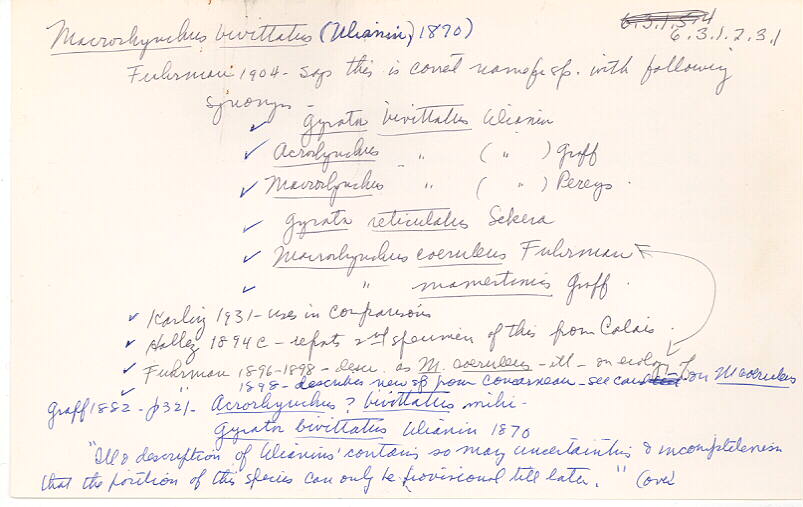 6.3.1.5.4
Macrorhynchus bivittatus (Ulianin, 1870) 6.3.1.2.3.1
Fuhrman 1904 - says this is correct name for sp. with following
synonyms -
✓ Gyrator bivittatus Ulianin
✓ Acrorhynchus " ( " ) Graff
✓ Macrorhynchus " ( " ) Pereys.
✓ Gyrator reticulatus Sekera
✓ Macrorhynchus coeruleus Fuhrman
✓ " mamertinus Graff.
✓ Karling 1931 - uses in comparisons
✓ Hallez 1894c - reports 2nd specimen of this from Calais.
✓ Fuhrman 1896-1898 - descr. as M. coeruleus - ill - on ecology
✓ " 1898 - describes new sp from Concarneau - see card for M coeruleus
Graff 1882 - p321 - Acrorhynchus ? bivittatus mihi -
Gyrator bivittatus Ulianin 1870
"Ill & description of Ulianins' contains so many uncertainties & incompleteness
that the position of this species can only be provisional till later." (over